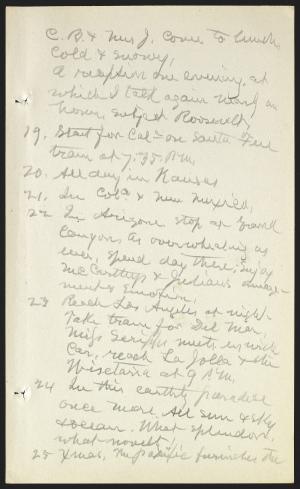 C. B. & Mrs J. come to lunch.
Cold & snowy,
A reception in evening, at
which I talk again nearly an
hour, subject Roosevelt,
19. Start for Cal— on Santa Fee
train at 7.35 P.M.
20. All day in Kansas
21. In Col° & New Mexico,
22 In Arizona stop at Grand
Canyon as overwhelming as
ever, spend day there; enjoy
McCarthys & Indians
Emotion.
23 Reach Los Angeles at night—
Take train for Del Mar,
Miss meets us with
car, reach La Jolla & the
Wisteria at 9 P.M.
24 In this earthly paradise
once more. All sun & sky
& ocean. What splendor,
what novelty!
25 Xmas. The pacific furnishes the